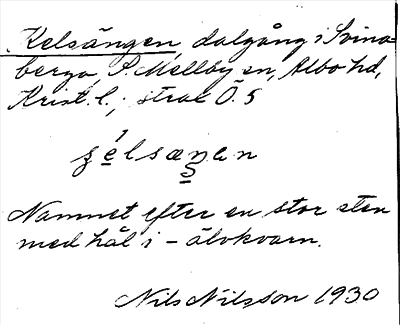 Kelsängen, dalgång i Svina=
berga, S. Mellby sn, Albo hd,
Krist. l.; strax Ö. S
Namnet efter en stor sten
med hål i - älvkvarn.
Nils Nilsson 1930